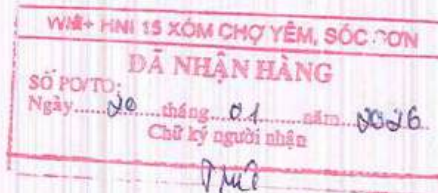 WM+ HNI 15 XÓM CHỢ YÊM, SÓC SƠN
ĐÃ NHẬN HÀNG
SỐ PO/TO:
Ngày......20......tháng....01......năm...2026
Chữ ký người nhận